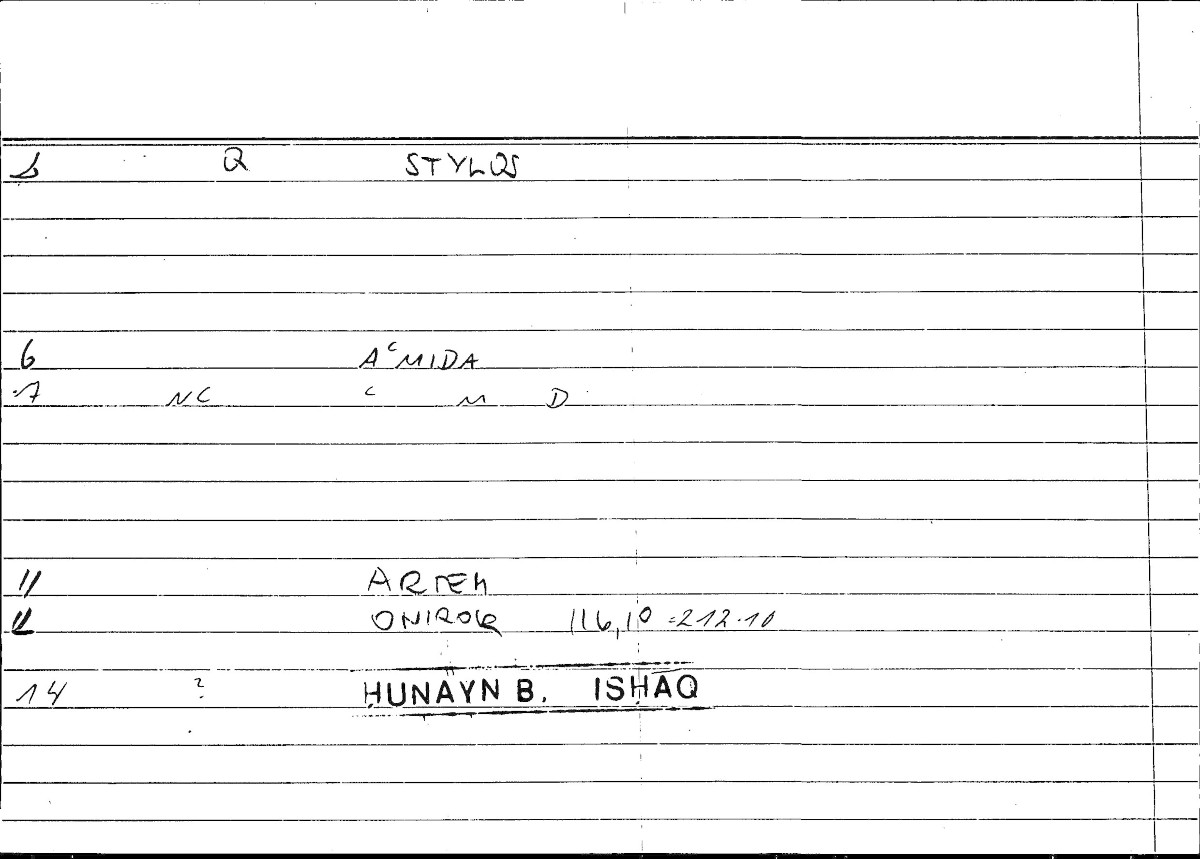 Q STYLOS
6 AʿMIDA
7 NC ʿ M D
11 ARTEM
12 ONIROK 116,10 = 212.10
14 ? ḤUNAYN B. ISḤĀQ